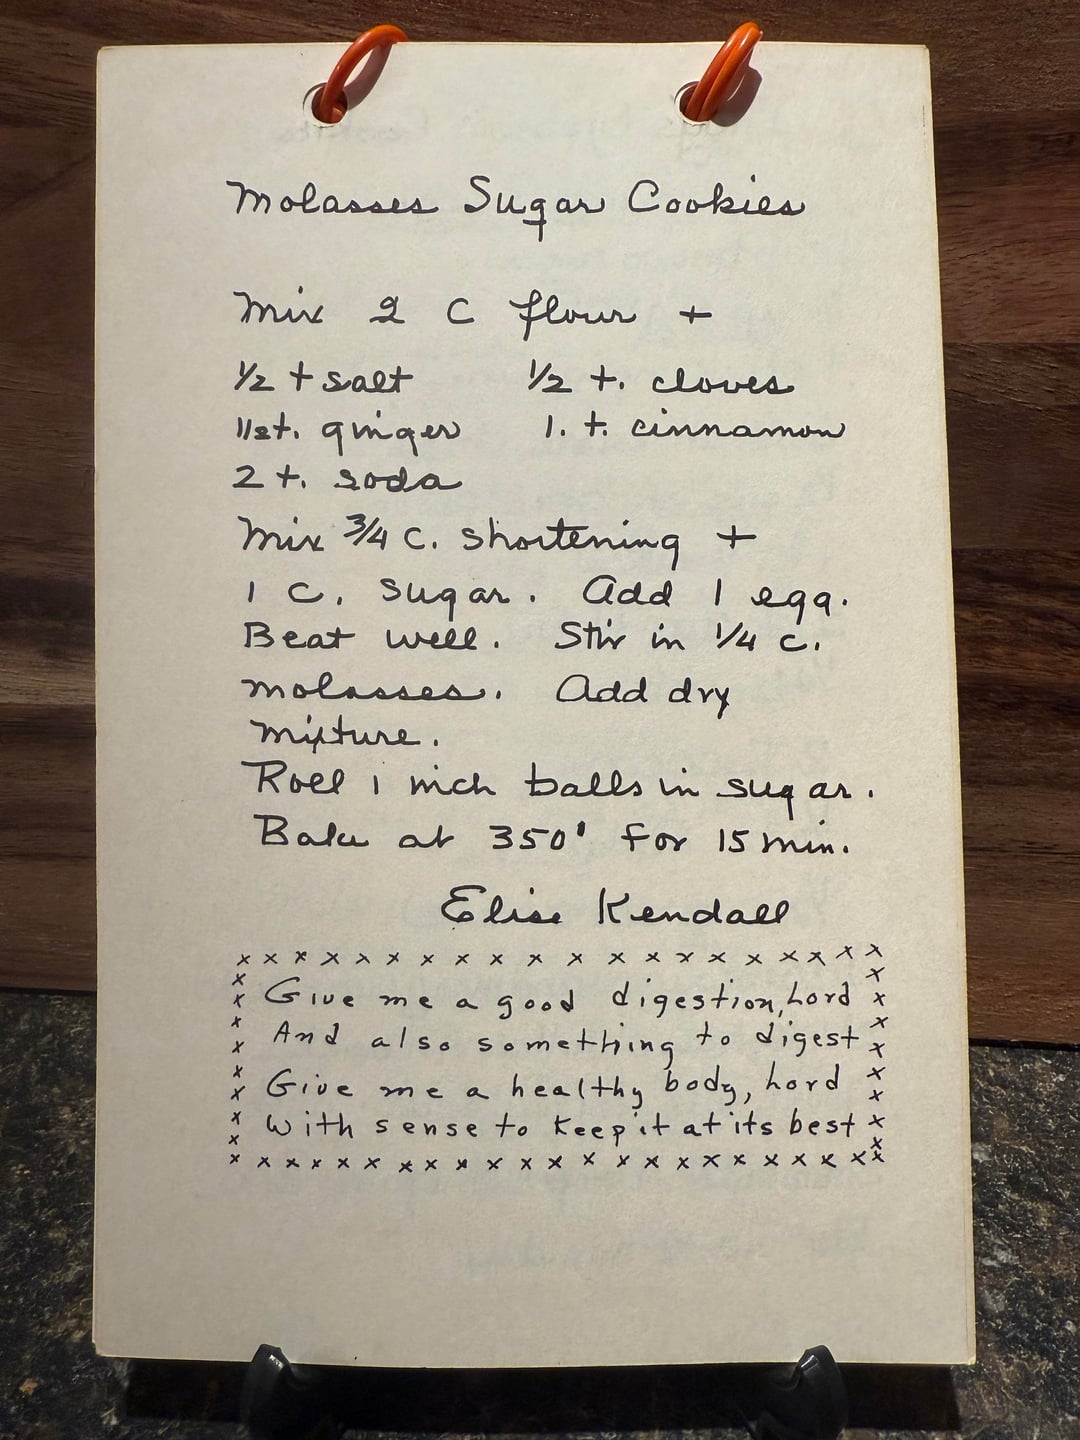 Molasses Sugar Cookies
Mix 2 C flour +
1/2 t salt 1/2 t. cloves
1/2 t. ginger 1. t. cinnamon
2 t. soda
Mix 3/4 c. shortening +
1 c. sugar. Add 1 egg.
Beat well. Stir in 1/4 c.
molasses. Add dry
mixture.
Roll 1 inch balls in sugar.
Bake at 350° for 15 min.
Elise Kendall
Give me a good digestion, Lord
And also something to digest
Give me a healthy body, Lord
With sense to keep it at its best